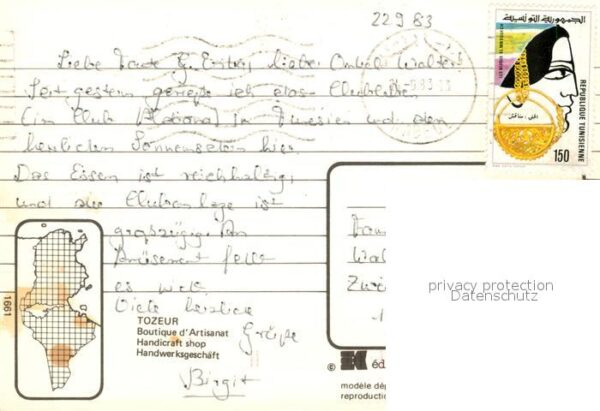 22 9 83
Liebe Tante Ester, lieber Onkel Walter!
Seit gestern genieße ich das Clubleben
im Club National in Tunesien und den
herrlichen Sonnenschein hier.
Das Essen ist reichhaltig,
und die Clubanlage ist
großzügig. An
Amüsement fehlt
es
Viele herzliche
Grüße
Birgit
الجمهورية التونسية
REPUBLIQUE TUNISIENNE
150
1661
TOZEUR
Boutique d'Artisanat
Handicraft shop
Handwerksgeschäft
Fam
Wal
Zür
privacy protection
Datenschutz
© éd
modèle dép
reproduction